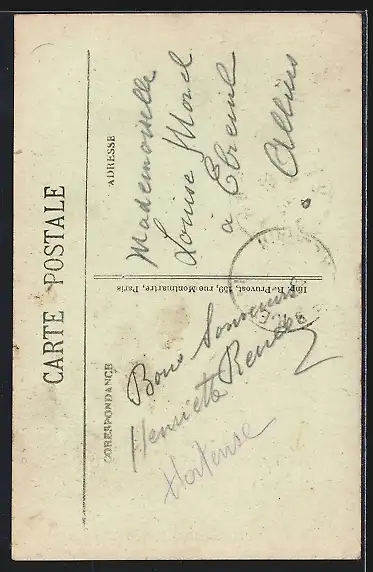 CARTE POSTALE
CORRESPONDANCE
Bons Souvenirs
Henriette Renée
Hortense
Imp. R. Pruvost, 159, rue Montmartre, Paris
ADRESSE
Mademoiselle
Louise Morel
à Ebreuil
Allier